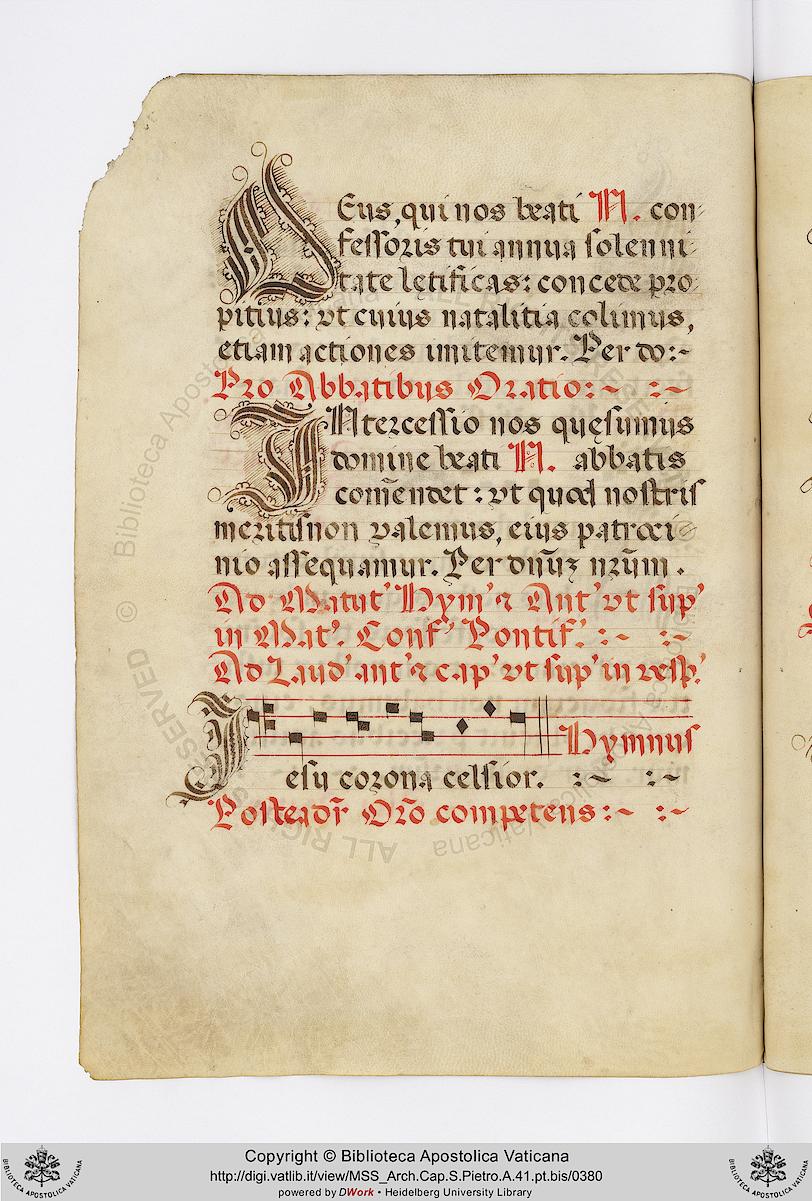 DEus, qui nos beati N. con-
fessoris tui annua solenni-
tate lętificas: concede pro-
pitius: vt cuius natalitia colimus,
etiam actiones imitemur. Per do:~
Pro Abbatibus Oratio:~ :~
INtercessio nos quęsumus
domine beati N. abbatis
com̃endet: vt quod nostris
meritis non valemus, eius patroci-
nio assequamur. Per dnũz nr̃um.
Ad Matut' Hym' ⁊ Ant' vt sup'
in Mat'. Conf' Pontif'. :~ :~
Ad Laud' ant' ⁊ cap' vt sup' in vesp.'
Hymnus
Iesu corona celsior. :~ :~
Postea dr̃ Orõ competens:~ :~
Copyright © Biblioteca Apostolica Vaticana
http://digi.vatlib.it/view/MSS_Arch.Cap.S.Pietro.A.41.pt.bis/0380
powered by DWork • Heidelberg University Library
BIBLIOTECA APOSTOLICA VATICANA
BIBLIOTECA APOSTOLICA VATICANA
© Biblioteca Apostolica Vaticana ALL RIGHTS RESERVED